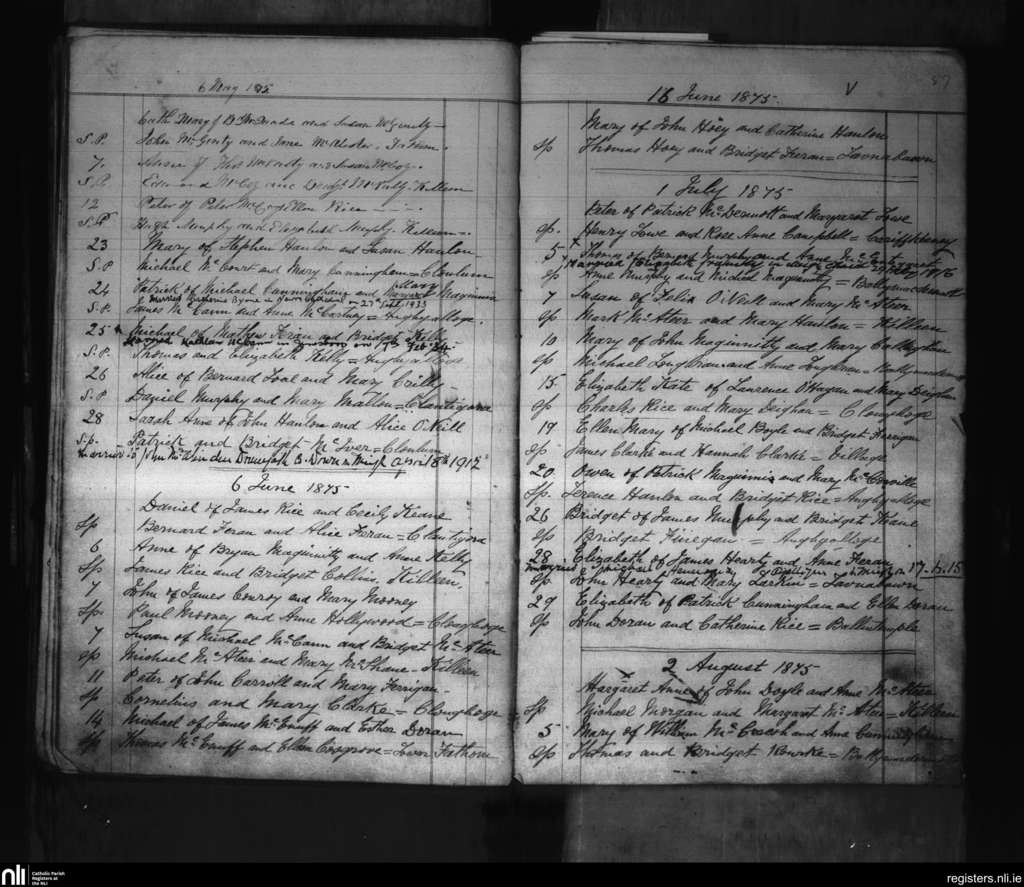 6 May 1875
Cath Mary of and Susan McGinity
S.P. John McGinty and Jane
7. Susan of Thos and Susan McCoy.
S.P. Edward McCoy and McNully Killeen
12 Peter of Peter Rice
S.P. Hugh Murphy and Elizabeth Murphy. Killeen
23 Mary of Stephen Hanlon and Susan Hanlon
S.P. Michael McCourt and Mary Cunningham = Clonlum
Mary
24 Patrick of Michael Cunningham and Maginnis
Married Catherine Byrne in on 27th Sept 1933
S.P. James McCann and Anne McCartney = Aughayalloge.
25 Michael of Mathew Feran and Bridget Kelly
Married McCann in on Feb
S.P. Thomas and Elizabeth Kelly =
26 Alice of Bernard Toal and Mary Crilly
S.P. Daniel Murphy and Mary Mallon = Clontigora
28 Sarah Anne of John Hanlon and Alice O'Neill
S.P. Patrick and Bridget McIver = Clonlum
Married John in Drumgath Co. Down April 8th 1912
6 June 1875
Daniel of James Rice and Cecily Keane
Sp Bernard Feran and Alice Feran = Clontigora
6 Anne of Bryan Maguinity and Anne Kelly
Sp James Rice and Bridget Collins. Killeen
7 John of James Conroy and Mary Mooney
Sp. Paul Mooney and Anne Hollywood = Cloughoge
7 Susan of Michael McCann and Bridget McAteer
Sp Michael McAteer and Mary McShane - Killeen
11 Peter of John Carroll and Mary Ferrigan -
Sp Cornelius and Mary Clarke = Cloughoge
14 Michael of James McEnuff and Esther Doran
Sp Thomas McEnuff and Ellen Cosgrove = Lower Fathom
87
16 June 1875. V
Mary of John Hoey and Catherine Hanlon
Sp Thomas Hoey and Bridget Feran = Tavnabawn
1 July 1875
Peter of Patrick McDermott and Margaret Lowe
Sp. Henry Lowe and Rose Anne Campbell = Carriffkeeny
5 Thomas of Bernard Murphy and Anne
Married Bridget in 1916
Sp Anne Murphy and Michael Maginnity = Ballymacdermott
7 Susan of Felix O'Neill and Mary McAteer
Sp. Mark McAteer and Mary Hanlon = Killeen
10 Mary of John Maginnity and Mary Callaghan
Sp Michael Loughran and Anne Loughran =
15 Elizabeth Kate of Laurence O'Hagan and Mary Deighan
Sp Charles Rice and Mary Deighan = Cloughoge
19 Ellen Mary of Michael Boyle and Bridget Keenan
Sp James Clarke and Hannah Clarke = Village
20 Owen of Patrick Maguinnis and Mary McConville
Sp. Terence Hanlon and Bridget Rice = Aughayalloge
26 Bridget of James Murphy and Bridget Keane
Sp Bridget Finegan = Aughyalloge
28 Elizabeth of James Hearty and Anne Feran
Married Michael 17.6.15
Sp John Hearty and Mary Larkin = Tavnabawn
29 Elizabeth of Patrick Cunningham and Ellen Doran
Sp John Doran and Catherine Rice = Ballintemple
2 August 1875
Margaret Anne of John Doyle and Anne McAteer
Sp. Michael Morgan and Margaret McAteer = Killeen
5 Mary of William McCrosh and Anne Cunningham
Sp Thomas and Bridget Rourke =
nli Catholic Parish
Registers at
the NLI
registers.nli.ie